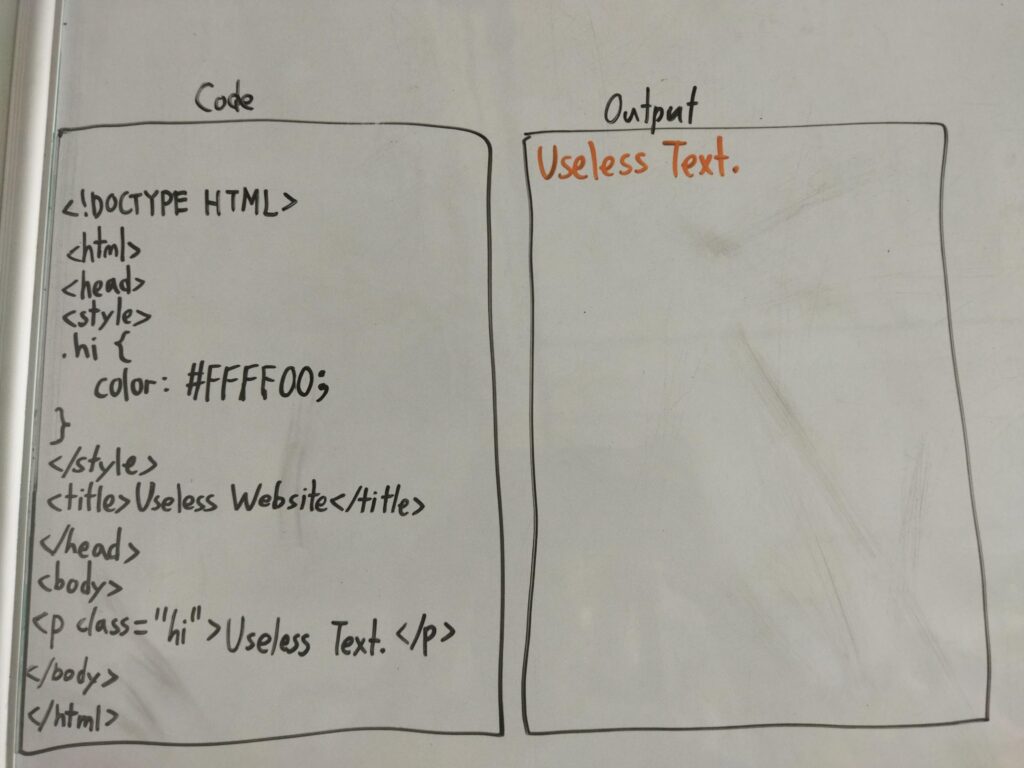 Code
<!DOCTYPE HTML>
<html>
<head>
<style>
.hi {
color: #FFFF00;
}
</style>
<title>Useless Website</title>
</head>
<body>
<p class="hi">Useless Text.</p>
</body>
</html>
Output
Useless Text.